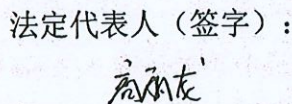 法定代表人（签字）：